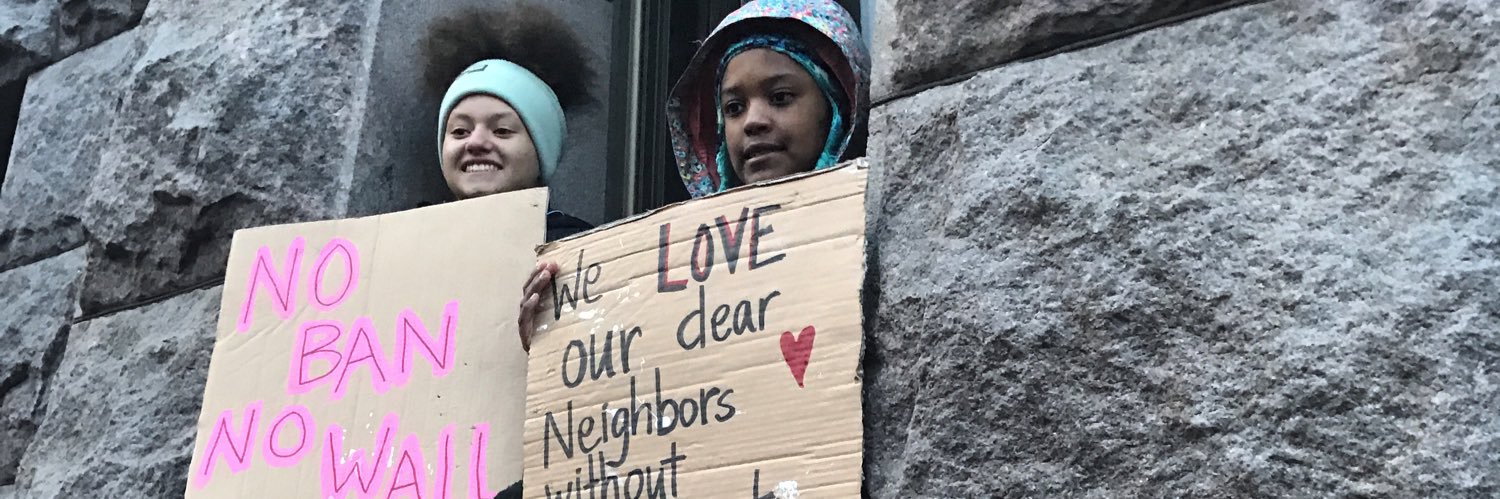 NO
BAN
NO WALL
We LOVE
our dear
Neighbors
without